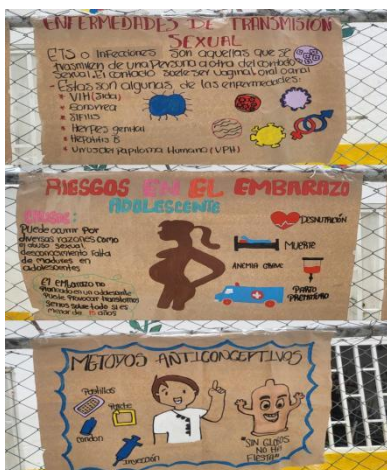 ENFERMEDADES DE TRANSMISION
SEXUAL
ETS o Infecciones son aquellas que se
de una persona a otra del contado
sexual. El contacto suele ser vaginal, oral o anal
- Estas son algunas de las enfermedades:
* VIH (Sida)
* Gonorrea
* SIFILIS
* Herpes genital
* Hepatitis B
* Virus del Papiloma Humano (VPH)
RIESGOS EN EL EMBARAZO
ADOLESCENTE
Puede ocurrir por
diversas razones como
el abuso sexual,
desconocimiento falta
de madurez en
adolescentes
El embarazo no
planeado en un adolescente
Puede provocar transtornos
serios sobre todo si es
menor de 15 años
DESNUTRICIÓN
MUERTE
ANEMIA GRAVE
PARTO
PREMATURO
METODOS ANTICONCEPTIVOS
Pastillas
Parche
condon
inyección
"SIN GLOBOS
NO HAY
FIESTA"